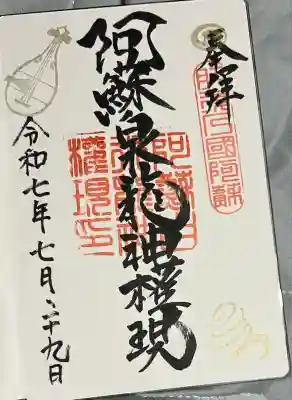 奉拝
阿蘇泉龍神権現
令和七年七月二十九日